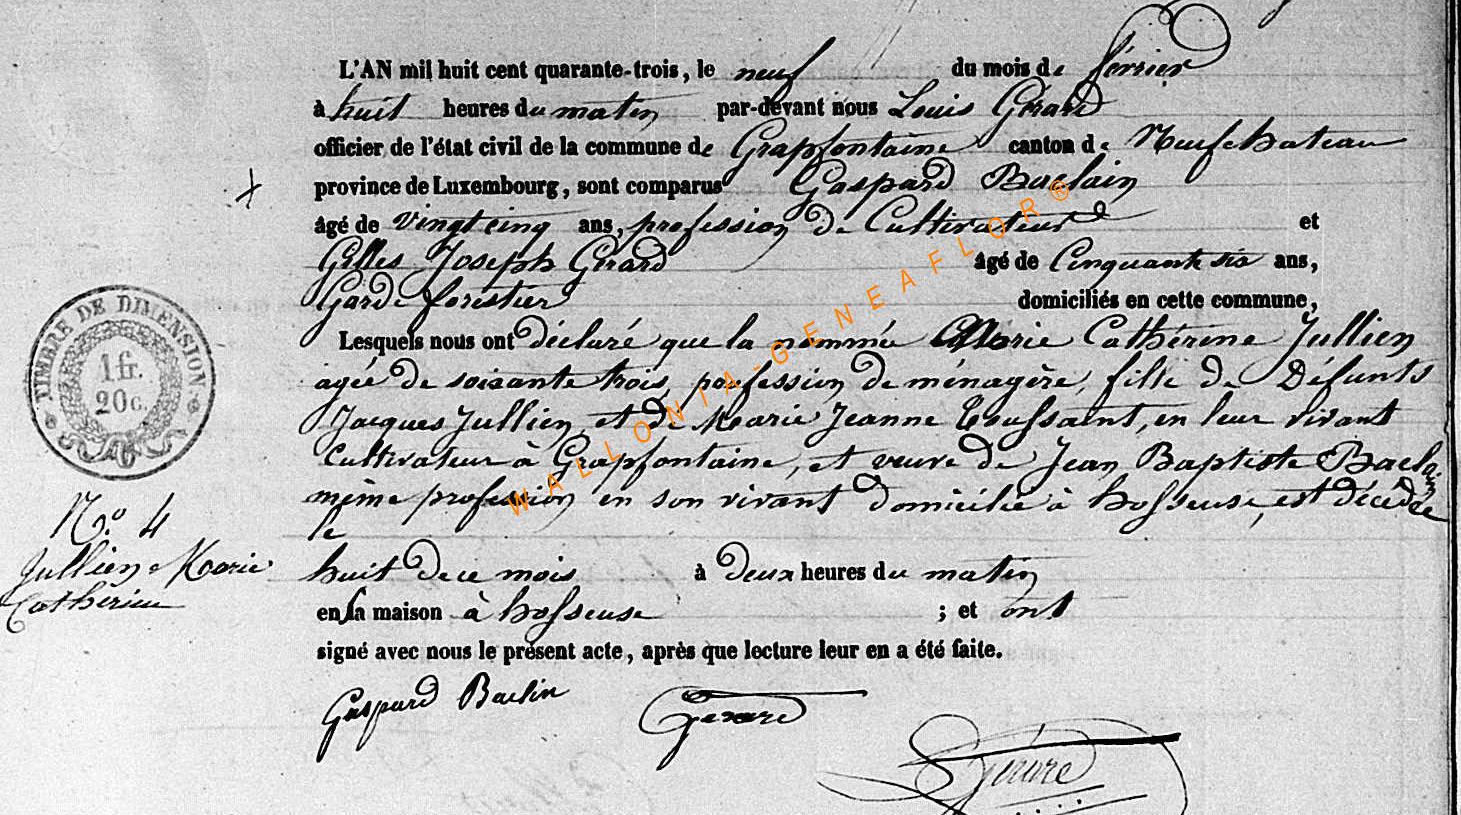 L'AN mil huit cent quarante-trois, le neuf du mois de février
à huit heures du matin par-devant nous Louis Gérard
officier de l'état civil de la commune de Grapfontaine canton de Neufchateau
province de Luxembourg, sont comparus Gaspard Baclain
âgé de vingt cinq ans, profession de Cultivateur et
Gilles Joseph Gerard âgé de Cinquante six ans,
Garde forestier domiciliés en cette commune,
Lesquels nous ont déclaré que la nommée Marie Cathérine Jullien
agée de soixante trois, profession de ménagère, fille de Défunts
Jacques Jullien, et de Marie Jeanne Toussaint, en leur vivant
Cultivateur à Grapfontaine, et veuve de Jean Baptiste Baclain
même profession en son vivant domiciliée à hosseuse, est décédée
le
huit de ce mois à deux heures du matin
en sa maison à hosseuse ; et ont
signé avec nous le présent acte, après que lecture leur en a été faite.
Gaspard Baclin Gerard
Gérard
TIMBRE DE DIMENSION
1 fr.
20 c.
N.° 4
Jullien Marie
Catherine
WALLONIA-GENEAFLOR®